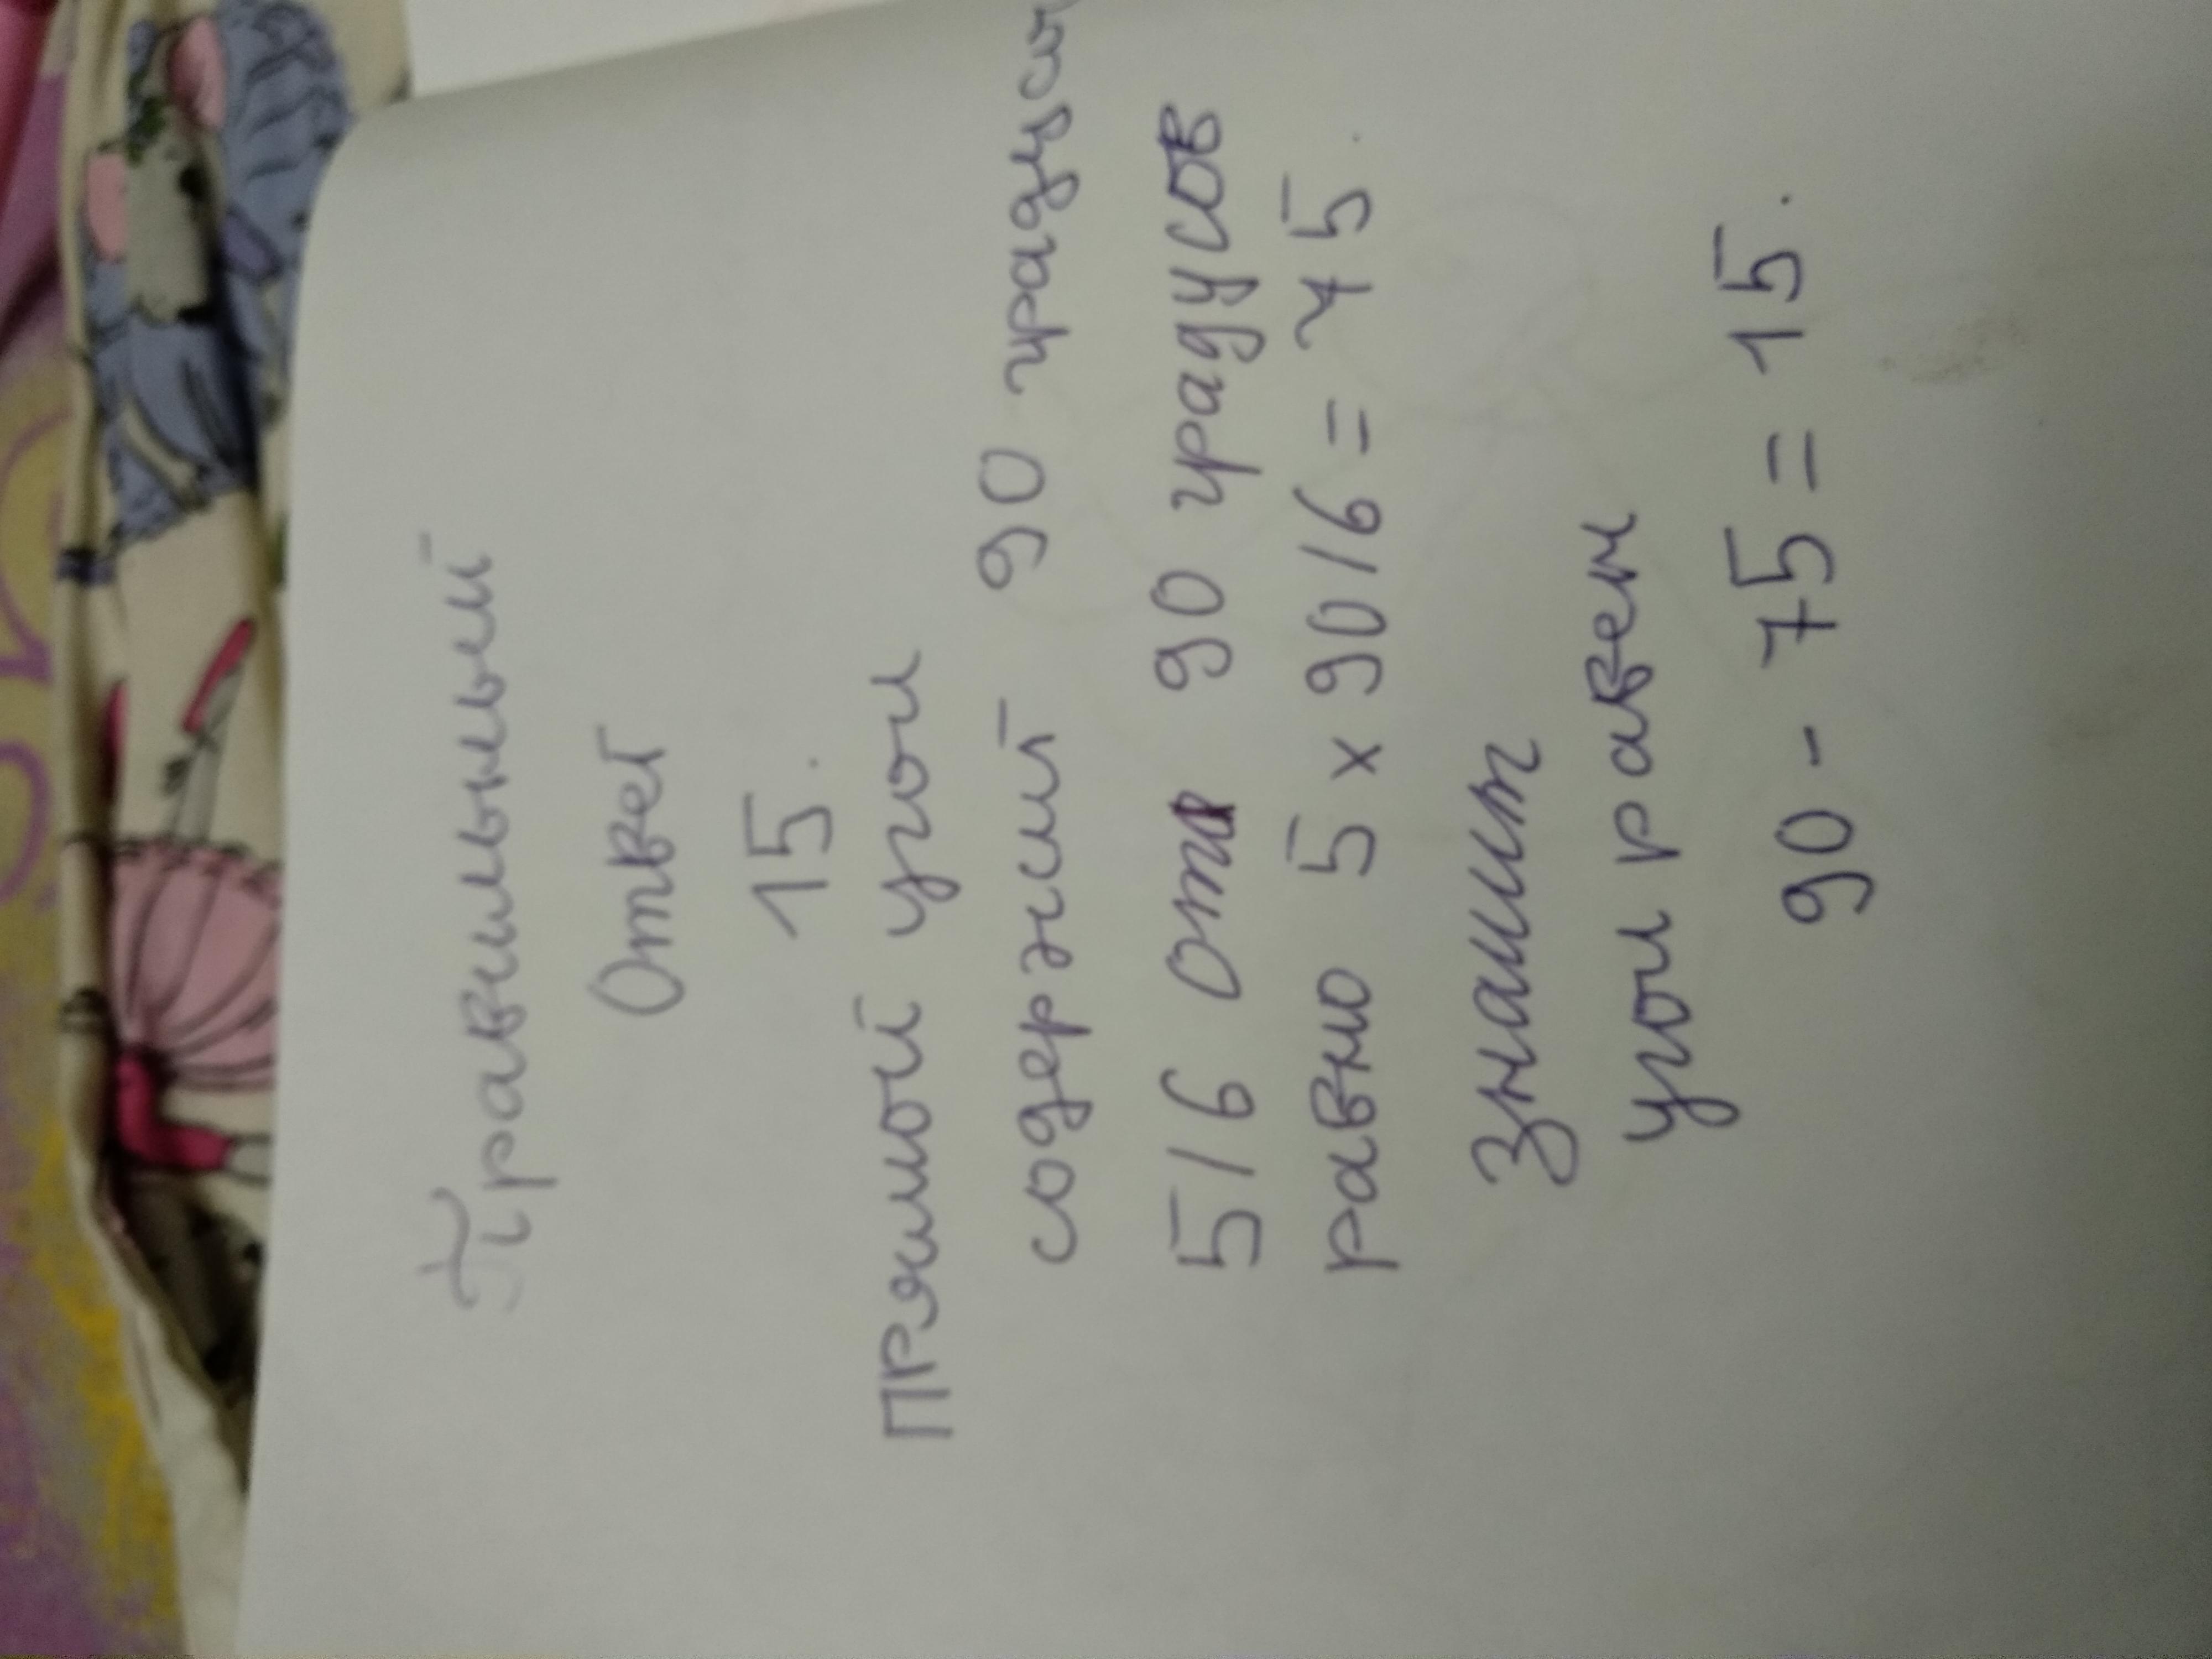 Правильный
Ответ
15.
Прямой угол
содержит 90 градусо
5/6 от 90 градусов
равно 5 x 90/6 = 75.
значит
угол равен
90 - 75 = 15.